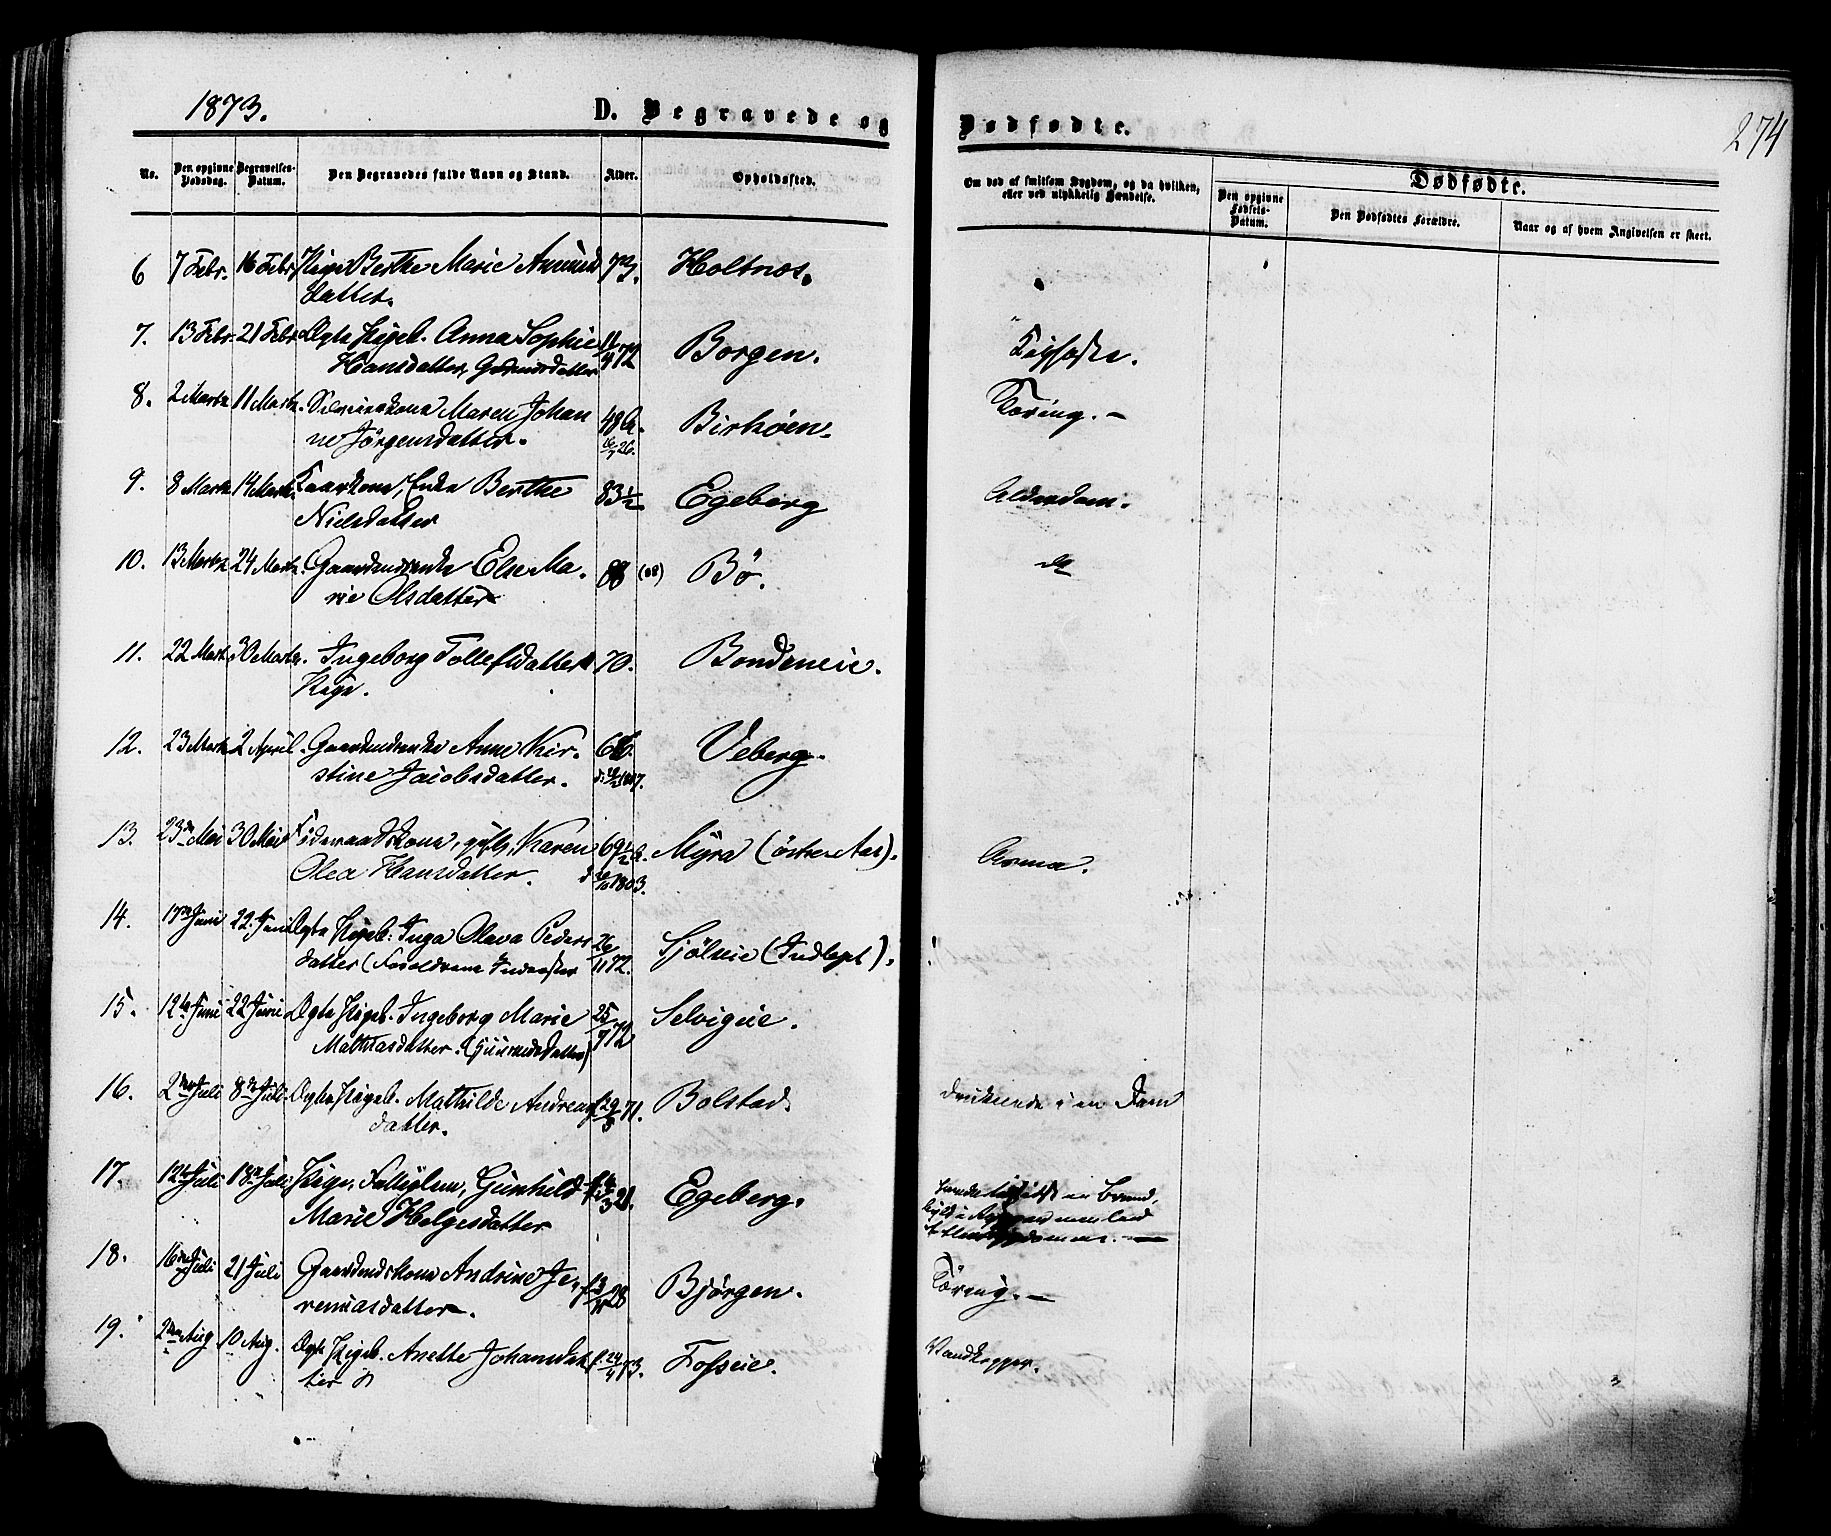 1873.
D. Begravede og Dødfødte.
274
No.
Den opgivne Dødsdag.
Begravelses-Datum.
Den Begravedes fulde Navn og Stand.
Alder.
Opholdssted.
Om død af smitsom Sygdom, og da hvilken, eller ved ulykkelig Hændelse.
Dødfødte.
Den opgivne Fødsels-Datum.
Den Dødfødtes Forældre.
Naar og af hvem Angivelsen er skeet.
6 7 Febr. 16 Febr. Pige Berthe Marie Amund 73. Holtnæs.
datter.
7. 13 Febr. 21 Febr. Ægte Pigeb. Anna Sophie 11/4 72 Borgen.
Hansdatter, Gdmdsdatter
8. 2 Marts 11 Marts. Maren Johan 48 Birhøen. Tæring. –
ne Jörgensdatter. 26.
9. 8 Marts 14 Marts Kaarkone, Enke Berthe 83 1/2 Egeberg Alderdom.
Nielsdatter
10. 13 Marts 24 Marts. Gaardmdsenke Else Ma- 88 (88) Bö. do
rie Olsdatter
11. 22 Marts 30 Marts. Ingeborg Tollefsdatter 70. Bondeneie.
Pige.
12. 23 Marts 2 April. Gaardmdsenke Anne Kir- 66. Veberg.
stine Jacobsdatter. 1807.
13. 23de Mai 30 Mai Föderaadskone, gift, Karen 69 1/2 Myra (östre Aas).
Olea Hansdatter. 1803.
14. 17de Juni 22. Juni Ægte Pigeb. Inga Olava Peders 26/11 72. Sjölveie (Indlagt).
datter (Forældrene Inderster
15. 12te Juni 22 Juni Ægte Pigeb. Ingeborg Marie 25/7 72 Selvigeie.
Mathiasdatter. (Huusmdsdatter)
16. 2den Juli 8de Juli. Ægte Pigeb. Mathilde Andreas 29/3 71. Bolstad. druknede i en Dam
datter.
17. 12te Juli 18de Juli Pige, Fattiglem, Gunhild 21. Egeberg.
Marie Helgesdatter
18. 16de Juli 21 Juli Gaardmdskone Andrine Je- 28 Björgen. Tæring. –
remiasdatter.
19. 2den Aug 10 Aug. Ægte Pigeb. Anette Johansdat f. 24/4 73. Fosseie. Vandkopper.
ter